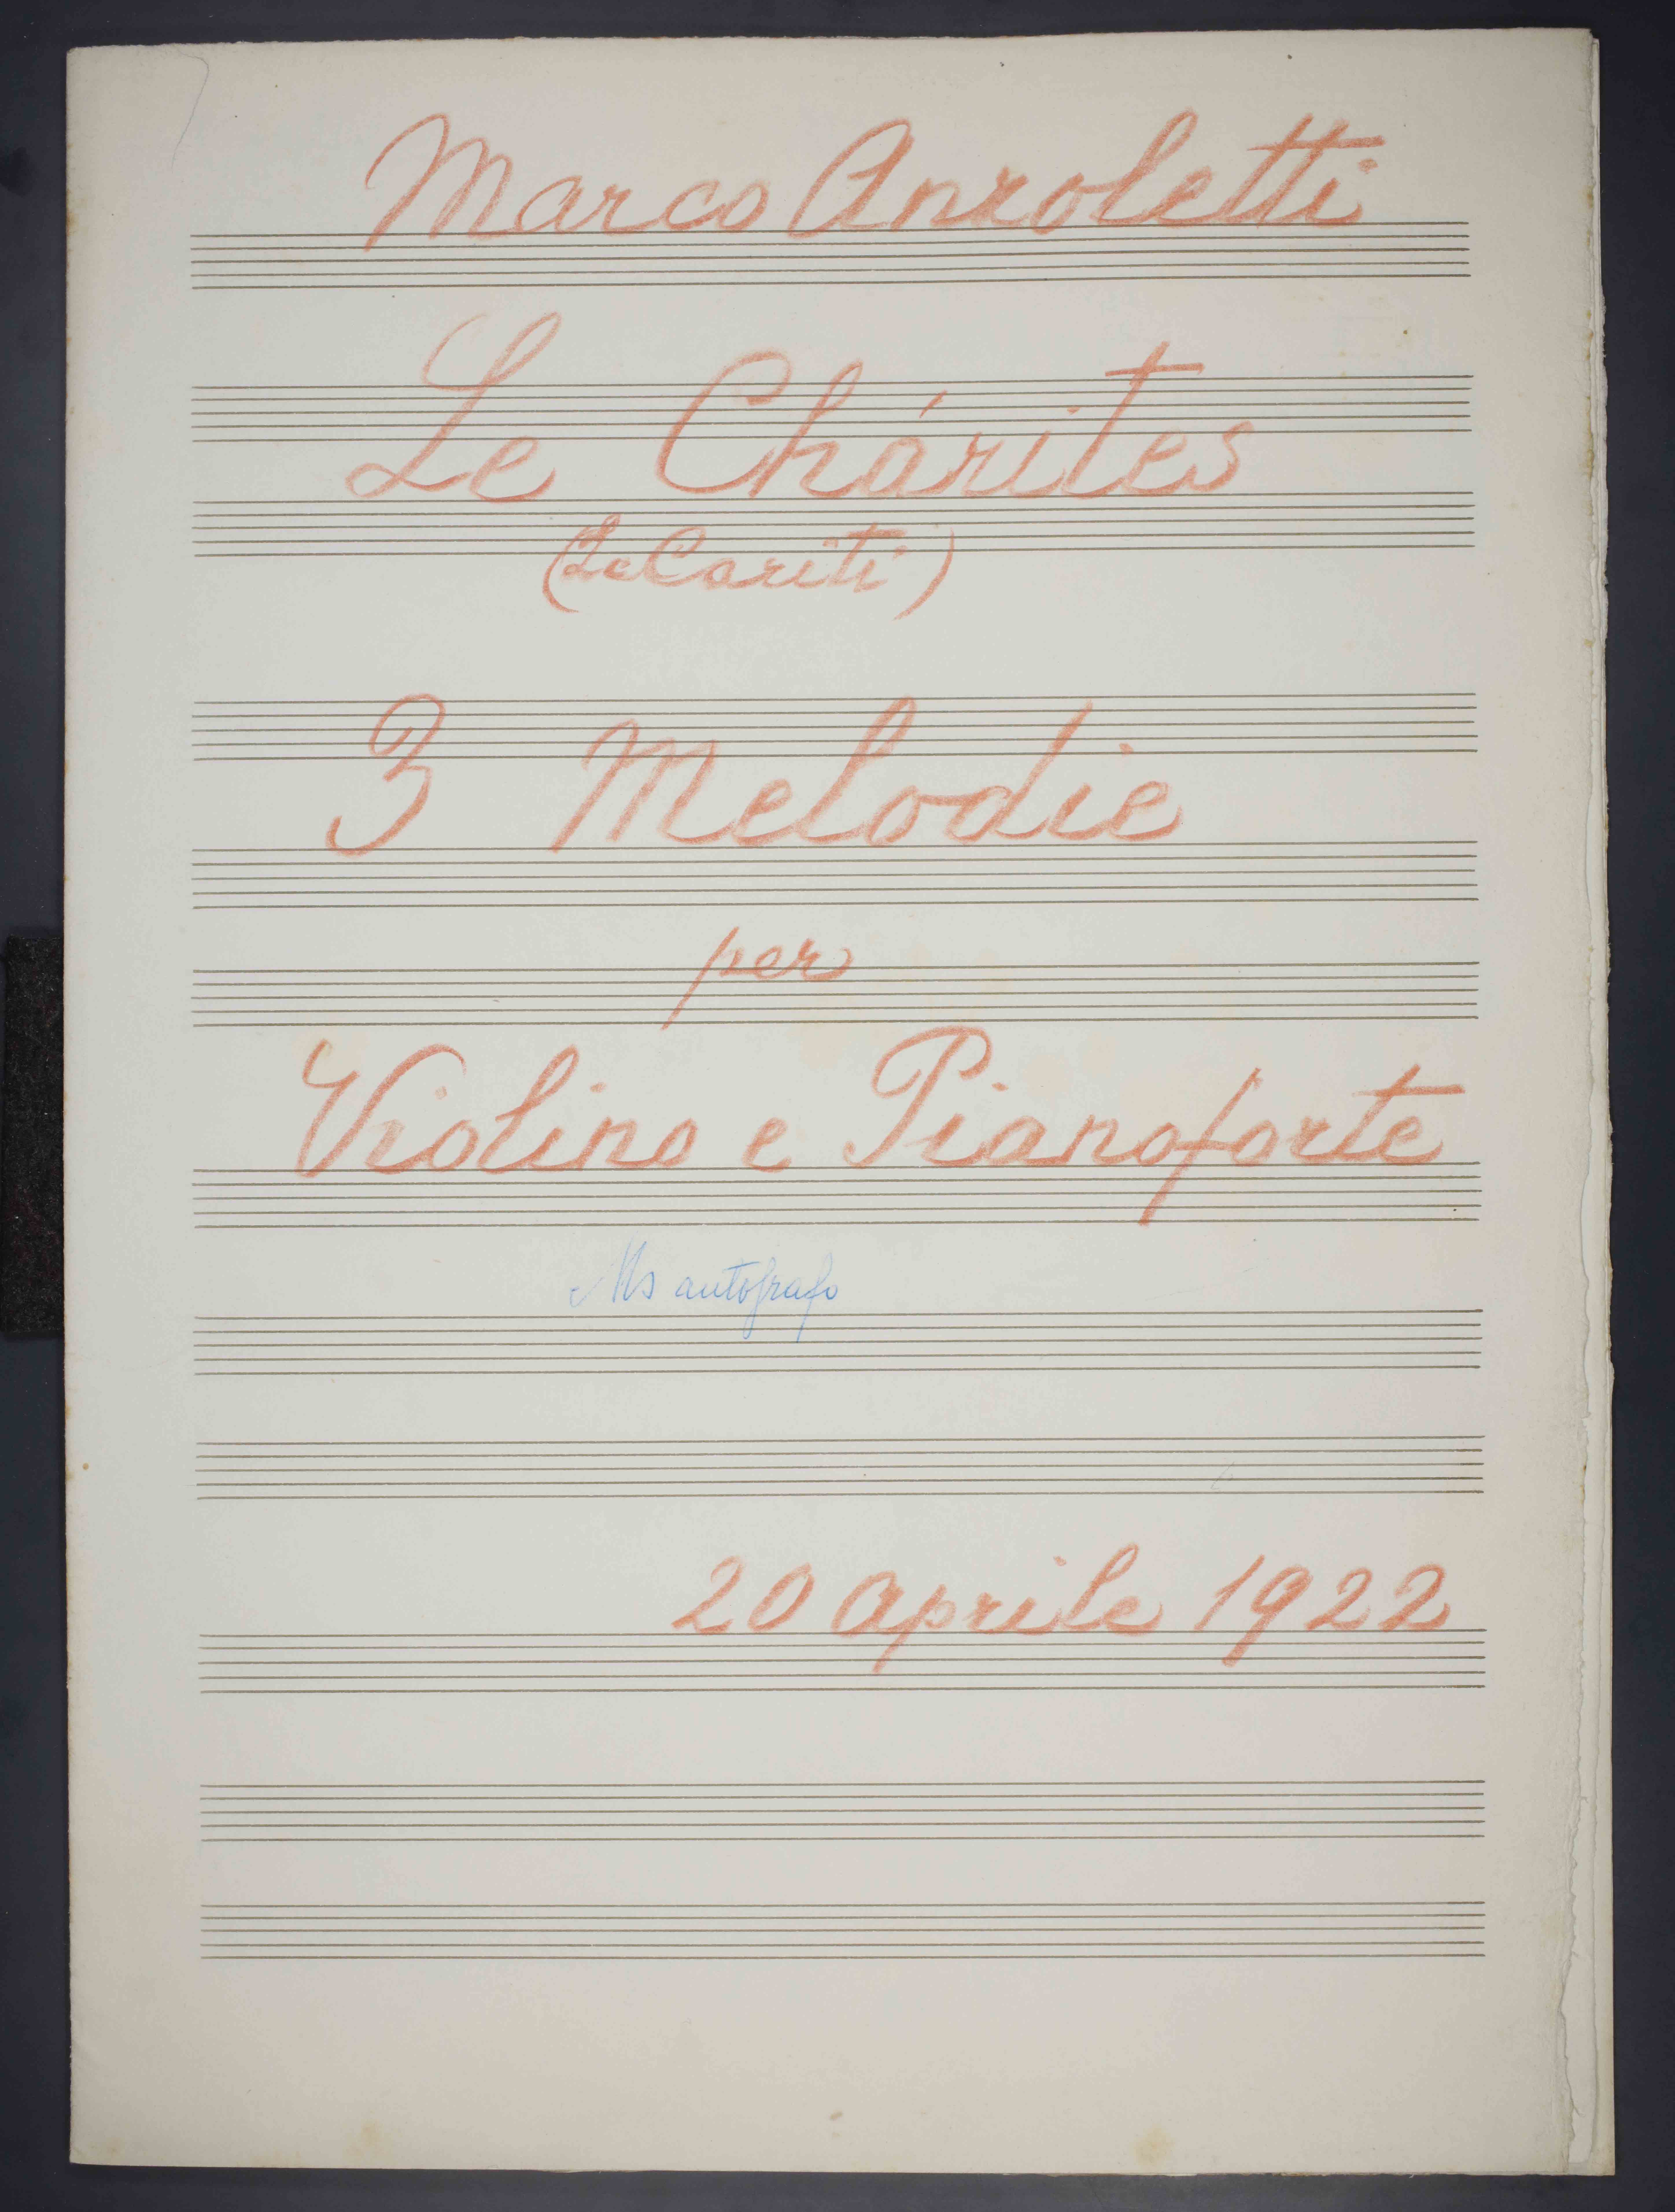 Marco Anzoletti
Le Chárites
(Le Cariti)
3 Melodie
per
Violino e Pianoforte
Ms autografo
20 Aprile 1922